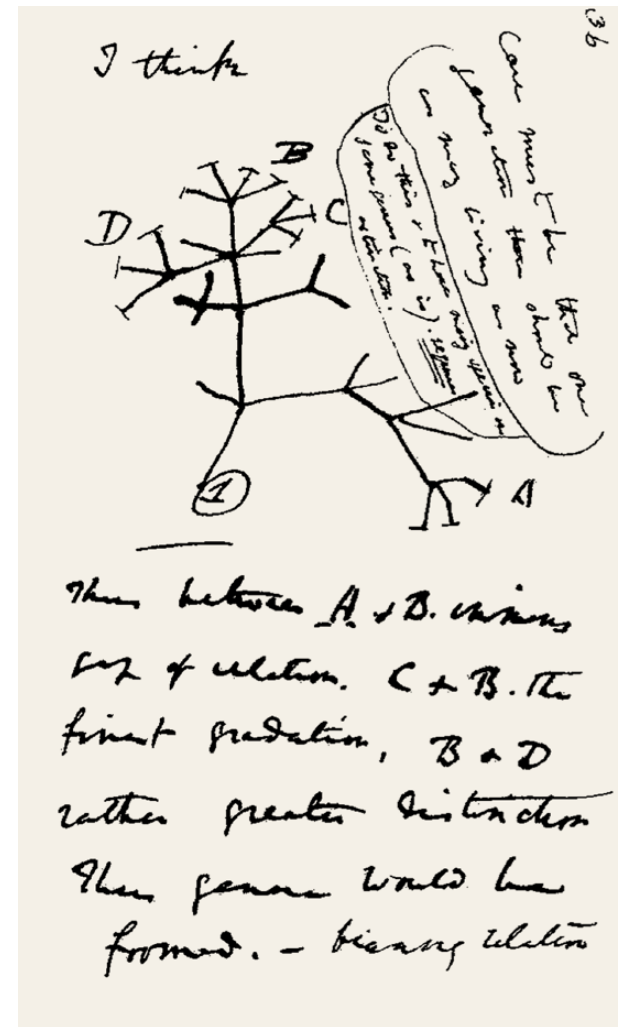 36
I think
Case must be that one
generation then should be
as many living as now
To do this & to have many species in
same genus (as is). requires
extinction.
B
C
D
A
1
Thus between A & B. immense
gap of relation. C & B. The
finest gradation, B & D
rather greater distinction
Thus genera would be
formed. – bearing relation